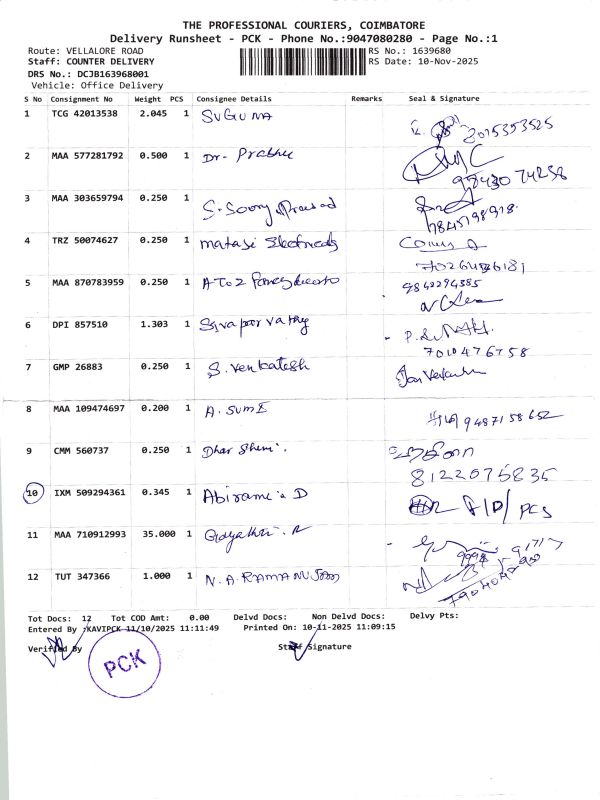 THE PROFESSIONAL COURIERS, COIMBATORE
Delivery Runsheet - PCK - Phone No.:9047080280 - Page No.:1
Route: VELLALORE ROAD RS No.: 1639680
Staff: COUNTER DELIVERY RS Date: 10-Nov-2025
DRS No.: DCJB163968001
Vehicle: Office Delivery
S No Consignment No Weight PCS Consignee Details Remarks Seal & Signature
1 TCG 42013538 2.045 1 SUGUNA
2 MAA 577281792 0.500 1 Dr- Prabhu
97430 74238
3 MAA 303659794 0.250 1
4 TRZ 50074627 0.250 1 matasi
5 MAA 870783959 0.250 1 A To Z
9842294385
6 DPI 857510 1.303 1
7010476758
7 GMP 26883 0.250 1 S. Venkatesh
8 MAA 109474697 0.200 1 A.
9487158652
9 CMM 560737 0.250 1
8122075835
10 IXM 509294361 0.345 1 Abirami D
A/D/ PCS
11 MAA 710912993 35.000 1
12 TUT 347366 1.000 1 N.A.RAMANUJAM
Tot Docs: 12 Tot COD Amt: 0.00 Delvd Docs: Non Delvd Docs: Delvy Pts:
Entered By :KAVIPCK 11/10/2025 11:11:49 Printed On: 10-11-2025 11:09:15
Verified By Staff Signature
PCK